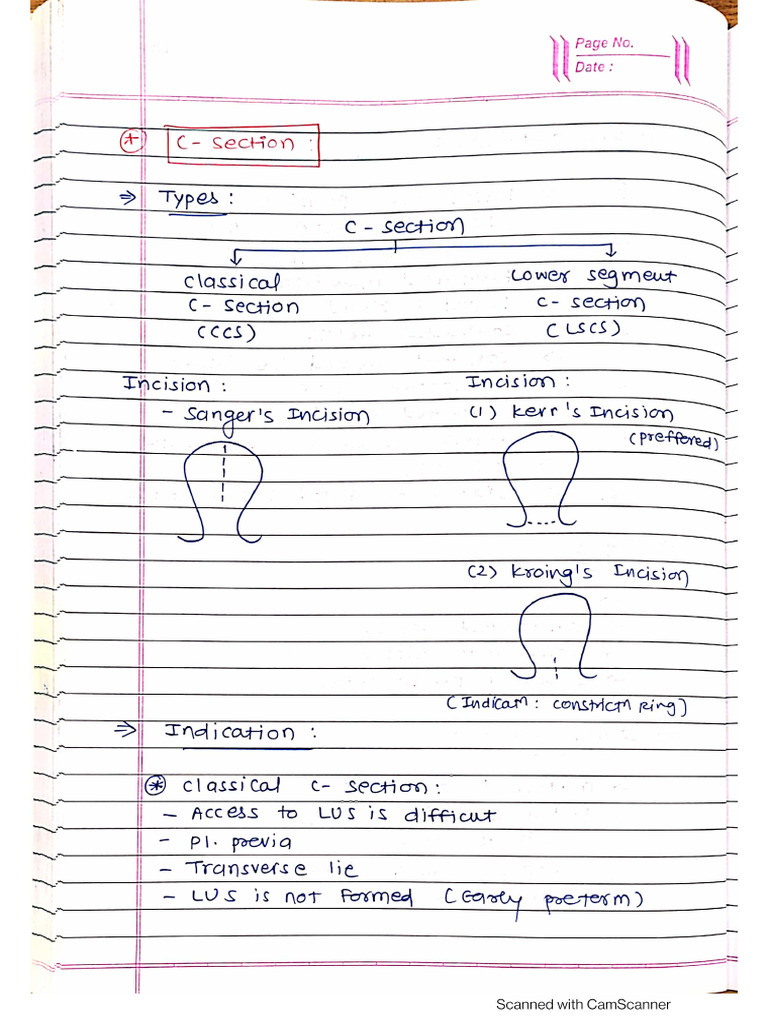 Page No.
Date :
C - Section :
⇒ Types :
C - section
Classical
C - Section
(CCS)
Lower segment
C - section
(LSCS)
Incision :
- Sanger's Incision
Incision :
(1) Kerr's Incision
(preffered)
(2) Kroing's Incision
(Indicatn : constrictn Ring)
⇒ Indication :
* Classical C - Section :
- Access to LUS is difficut
- Pl. previa
- Transverse lie
- LUS is not formed (Early preterm)
Scanned with CamScanner